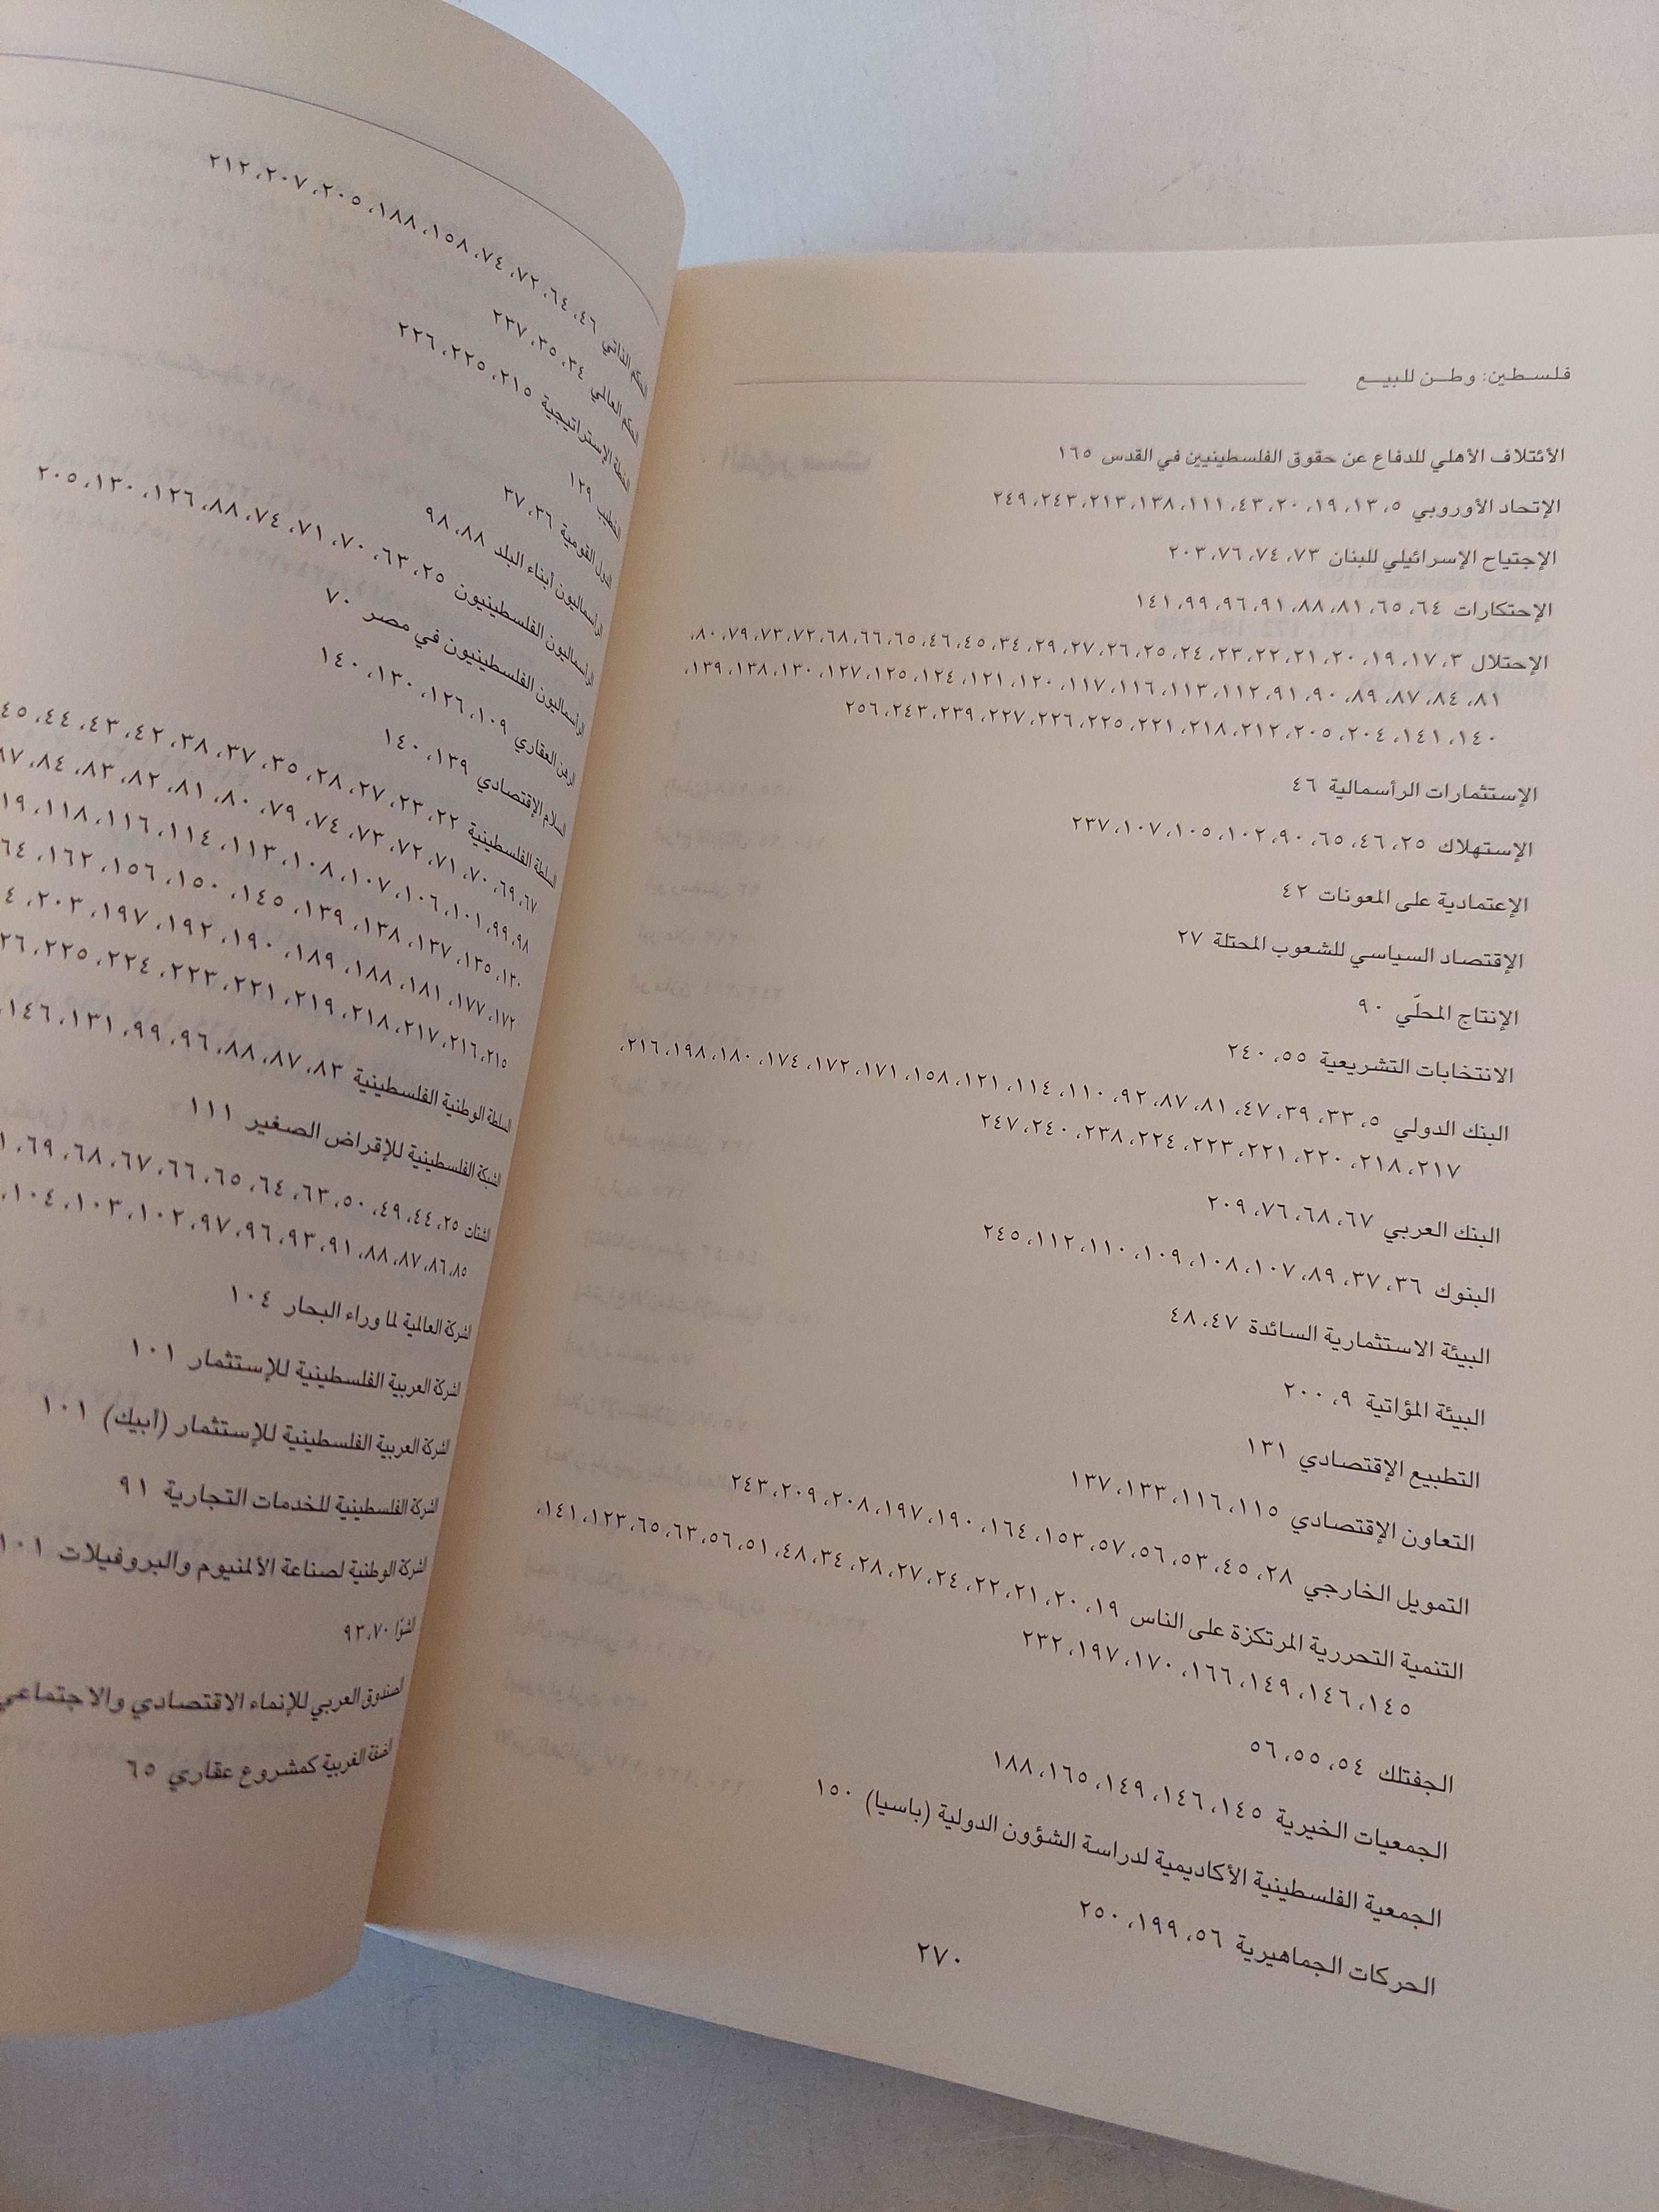 فلسطين: وطن للبيع
الأئتلاف الأهلي للدفاع عن حقوق الفلسطينيين في القدس ١٦٥
الإتحاد الأوروبي ٥، ١٣، ١٩، ٢٠، ٤٣، ١١١، ١٣٨، ٢١٣، ٢٤٣، ٢٤٩
الإجتياح الإسرائيلي للبنان ٧٣، ٧٤، ٧٦، ٢٠٣
الإحتكارات ٦٤، ٦٥، ٨١، ٨٨، ٩١، ٩٦، ٩٩، ١٤١
الإحتلال ٣، ١٧، ١٩، ٢٠، ٢١، ٢٢، ٢٣، ٢٤، ٢٥، ٢٦، ٢٧، ٢٩، ٣٤، ٤٥، ٤٦، ٦٥، ٦٦، ٦٨، ٧٢، ٧٣، ٧٩، ٨٠،
٨١، ٨٤، ٨٧، ٨٩، ٩٠، ٩١، ١١٢، ١١٣، ١١٦، ١١٧، ١٢٠، ١٢١، ١٢٤، ١٢٥، ١٢٧، ١٣٠، ١٣٨، ١٣٩،
١٤٠، ١٤١، ٢٠٤، ٢٠٥، ٢١٢، ٢١٨، ٢٢١، ٢٢٥، ٢٢٦، ٢٢٧، ٢٣٩، ٢٤٣، ٢٥٦
الإستثمارات الرأسمالية ٤٦
الإستهلاك ٢٥، ٤٦، ٦٥، ٩٠، ١٠٢، ١٠٥، ١٠٧، ٢٣٧
الإعتمادية على المعونات ٤٢
الإقتصاد السياسي للشعوب المحتلة ٢٧
الإنتاج المحلّي ٩٠
الانتخابات التشريعية ٥٥، ٢٤٠
البنك الدولي ٥، ٣٣، ٣٩، ٤٧، ٨١، ٨٧، ٩٢، ١١٠، ١١٤، ١٢١، ١٥٨، ١٧١، ١٧٢، ١٧٤، ١٨٠، ١٩٨، ٢١٦،
٢١٧، ٢١٨، ٢٢٠، ٢٢١، ٢٢٣، ٢٢٤، ٢٣٨، ٢٤٠، ٢٤٧
البنك العربي ٦٧، ٦٨، ٧٦، ٢٠٩
البنوك ٣٦، ٣٧، ٨٩، ١٠٧، ١٠٨، ١٠٩، ١١٠، ١١٢، ٢٤٥
البيئة الاستثمارية السائدة ٤٧، ٤٨
البيئة المؤاتية ٩، ٢٠٠
التطبيع الإقتصادي ١٣١
التعاون الإقتصادي ١١٥، ١١٦، ١٣٣، ١٣٧
التمويل الخارجي ٢٨، ٤٥، ٥٣، ٥٦، ٥٧، ١٥٣، ١٦٤، ١٩٠، ١٩٧، ٢٠٨، ٢٠٩، ٢٤٣
التنمية التحررية المرتكزة على الناس ١٩، ٢٠، ٢١، ٢٢، ٢٤، ٢٧، ٢٨، ٣٤، ٤٨، ٥١، ٥٦، ٦٣، ٦٥، ١٢٣، ١٤١،
١٤٥، ١٤٦، ١٤٩، ١٦٦، ١٧٠، ١٩٧، ٢٣٢
الجفتلك ٥٤، ٥٥، ٥٦
الجمعيات الخيرية ١٤٥، ١٤٦، ١٤٩، ١٦٥، ١٨٨
الجمعية الفلسطينية الأكاديمية لدراسة الشؤون الدولية (باسيا) ١٥٠
الحركات الجماهيرية ٥٦، ١٩٩، ٢٥٠
٢٧٠
الذاتي ٤٦، ٦٤، ٧٢، ٧٤، ١٥٨، ١٨٨، ٢٠٥، ٢٠٧، ٢١٢
العالمي ٣٤، ٣٥، ٢٣٧
الإستراتيجية ٢١٥، ٢٢٥، ٢٢٦
١٢٩
القومية ٣٦، ٣٧
الرأسماليون أبناء البلد ٨٨، ٩٨
الرأسماليون الفلسطينيون ٢٥، ٦٣، ٧٠، ٧١، ٧٤، ٨٨، ١٢٦، ١٣٠، ٢٠٥
الرأسماليون الفلسطينيون في مصر ٧٠
العقاري ١٠٩، ١٢٦، ١٣٠، ١٤٠
السلام الإقتصادي ١٣٩، ١٤٠
السلطة الفلسطينية ٢٢، ٢٣، ٢٧، ٢٨، ٣٥، ٣٧، ٣٨، ٤٢، ٤٣، ٤٤،
٦٧، ٦٩، ٧٠، ٧١، ٧٢، ٧٣، ٧٤، ٧٩، ٨٠، ٨١، ٨٢، ٨٣، ٨٤،
٩٨، ٩٩، ١٠١، ١٠٦، ١٠٧، ١٠٨، ١١٣، ١١٤، ١١٦، ١١٨،
١٣٠، ١٣٥، ١٣٧، ١٣٨، ١٣٩، ١٤٥، ١٥٠، ١٥٦، ١٦٢،
١٧٢، ١٧٧، ١٨١، ١٨٨، ١٨٩، ١٩٠، ١٩٢، ١٩٧، ٢٠٣،
٢١٥، ٢١٦، ٢١٧، ٢١٨، ٢١٩، ٢٢١، ٢٢٣، ٢٢٤، ٢٢٥،
السلطة الوطنية الفلسطينية ٨٣، ٨٧، ٨٨، ٩٦، ٩٩، ١٣١، ١٤٦،
الشبكة الفلسطينية للإقراض الصغير ١١١
الشتات ٢٥، ٤٤، ٤٩، ٥٠، ٦٣، ٦٤، ٦٥، ٦٦، ٦٧، ٦٨، ٦٩،
٨٥، ٨٦، ٨٧، ٨٨، ٩١، ٩٣، ٩٦، ٩٧، ١٠٢، ١٠٣، ١٠٤،
الشركة العالمية لما وراء البحار ١٠٤
الشركة العربية الفلسطينية للإستثمار ١٠١
الشركة العربية الفلسطينية للإستثمار (أبيك) ١٠١
الشركة الفلسطينية للخدمات التجارية ٩١
الشركة الوطنية لصناعة الألمنيوم والبروفيلات ١٠١
الشوّا ٧٠، ٩٣
الصندوق العربي للإنماء الاقتصادي والاجتماعي
الضفة الغربية كمشروع عقاري ٦٥